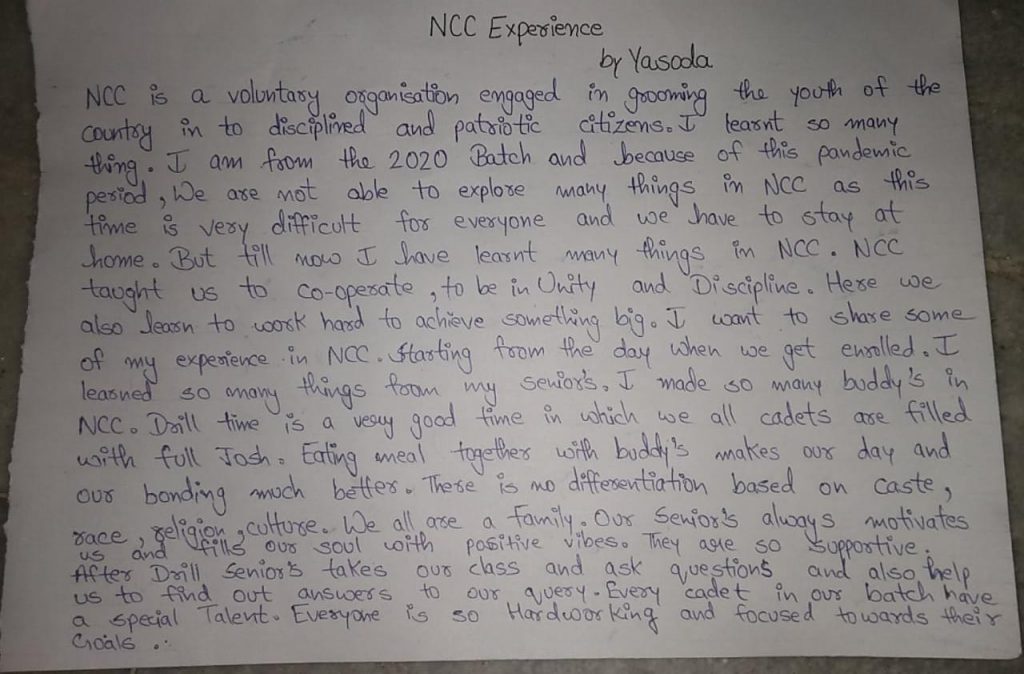 NCC Experience
by Yasoda
NCC is a voluntary organisation engaged in grooming the youth of the
country in to disciplined and patriotic citizens. I learnt so many
thing. I am from the 2020 Batch and because of this pandemic
period, We are not able to explore many things in NCC as this
time is very difficult for everyone and we have to stay at
home. But till now I have learnt many things in NCC. NCC
taught us to co-operate, to be in Unity and Discipline. Here we
also learn to work hard to achieve something big. I want to share some
of my experience in NCC. Starting from the day when we get enrolled. I
learned so many things from my senior's. I made so many buddy's in
NCC. Drill time is a very good time in which we all cadets are filled
with full Josh. Eating meal together with buddy's makes our day and
our bonding much better. There is no differentiation based on caste,
race, religion, culture. We all are a family. Our Senior's always motivates
us and fills our soul with positive vibes. They are so supportive.
After Drill Senior's takes our class and ask questions and also help
us to find out answers to our query. Every cadet in our batch have
a special Talent. Everyone is so Hardworking and focused towards their
Goals.